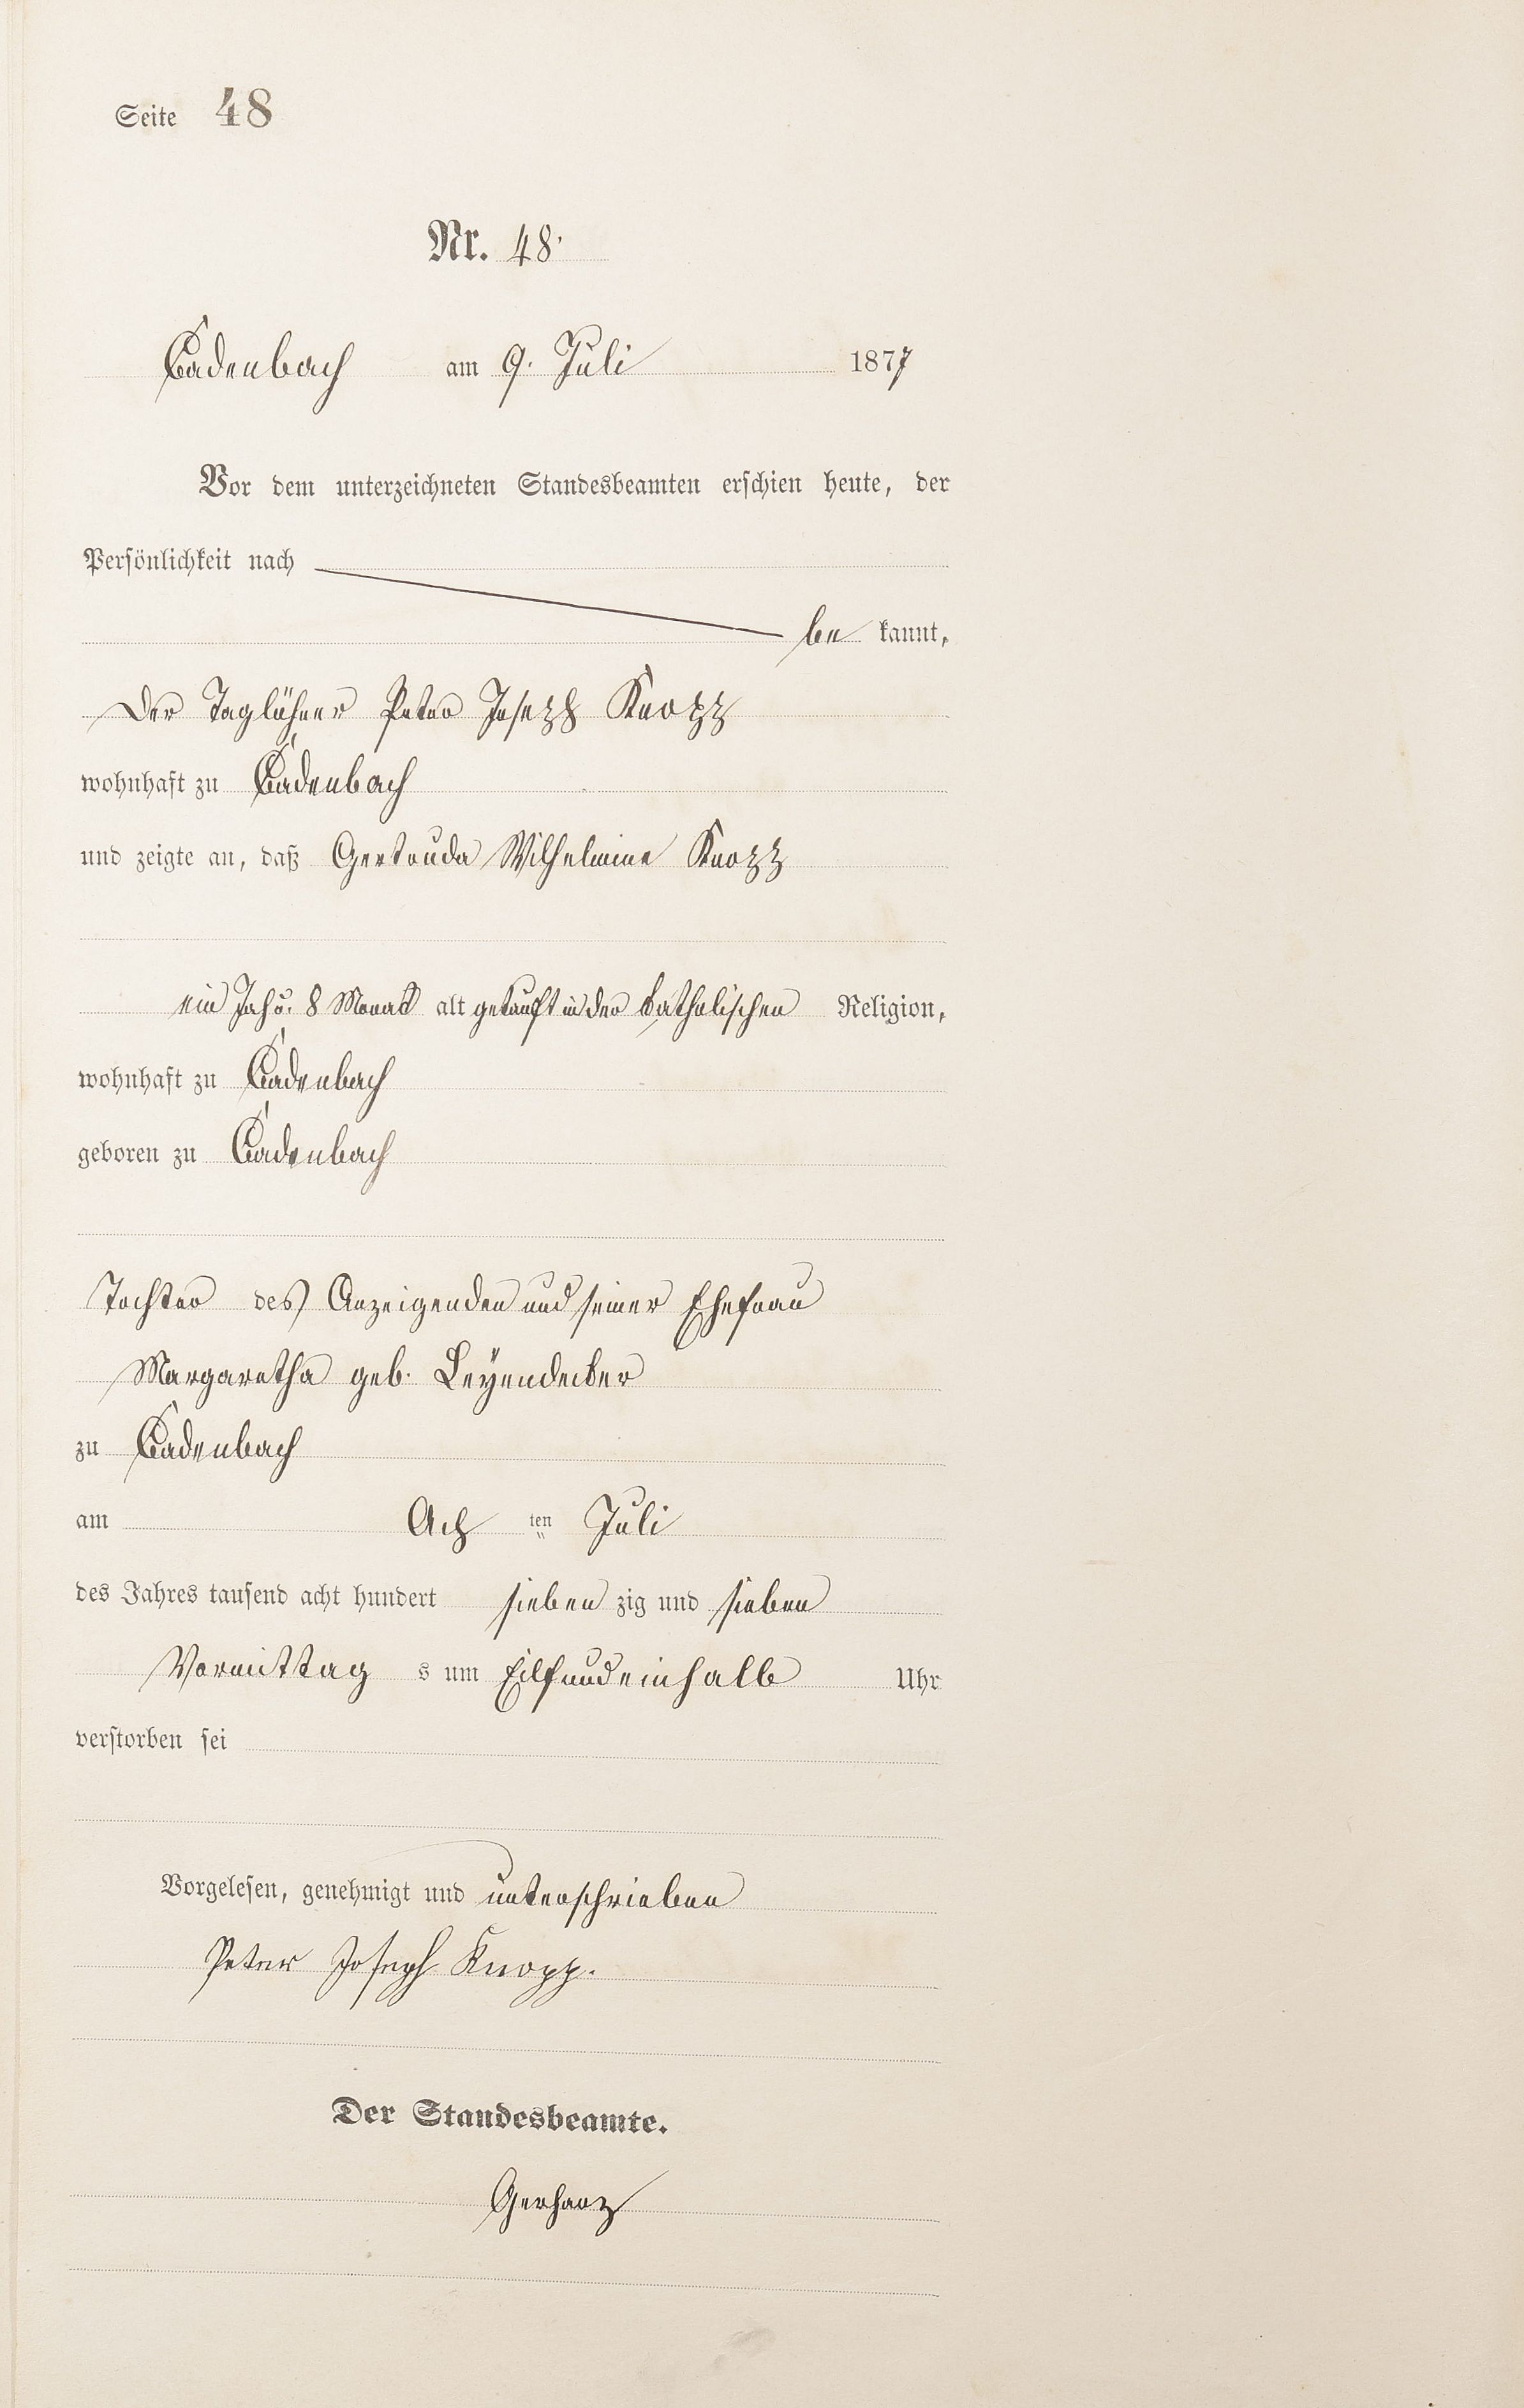 Seite 48
Nr. 48.
Cadenbach am 9. Juli 1877
Vor dem unterzeichneten Standesbeamten erschien heute, der
Persönlichkeit nach
be kannt,
Der Taglöhner Peter Joseph Knopp
wohnhaft zu Cadenbach
und zeigte an, daß Gertruda Wilhelmine Knopp
ein Jahr. 8 Monat alt getauft in der katholischen Religion,
wohnhaft zu Cadenbach
geboren zu Cadenbach
Tochter des Anzeigenden und seiner Ehefrau
Margaretha geb. Leyendecker
zu Cadenbach
am Ach ten Juli
des Jahres tausend acht hundert sieben zig und sieben
Vormittag s um Eilfundeinhalb Uhr
verstorben sei
Vorgelesen, genehmigt und unterschrieben
Peter Joseph Knopp.
Der Standesbeamte.
Gerharz